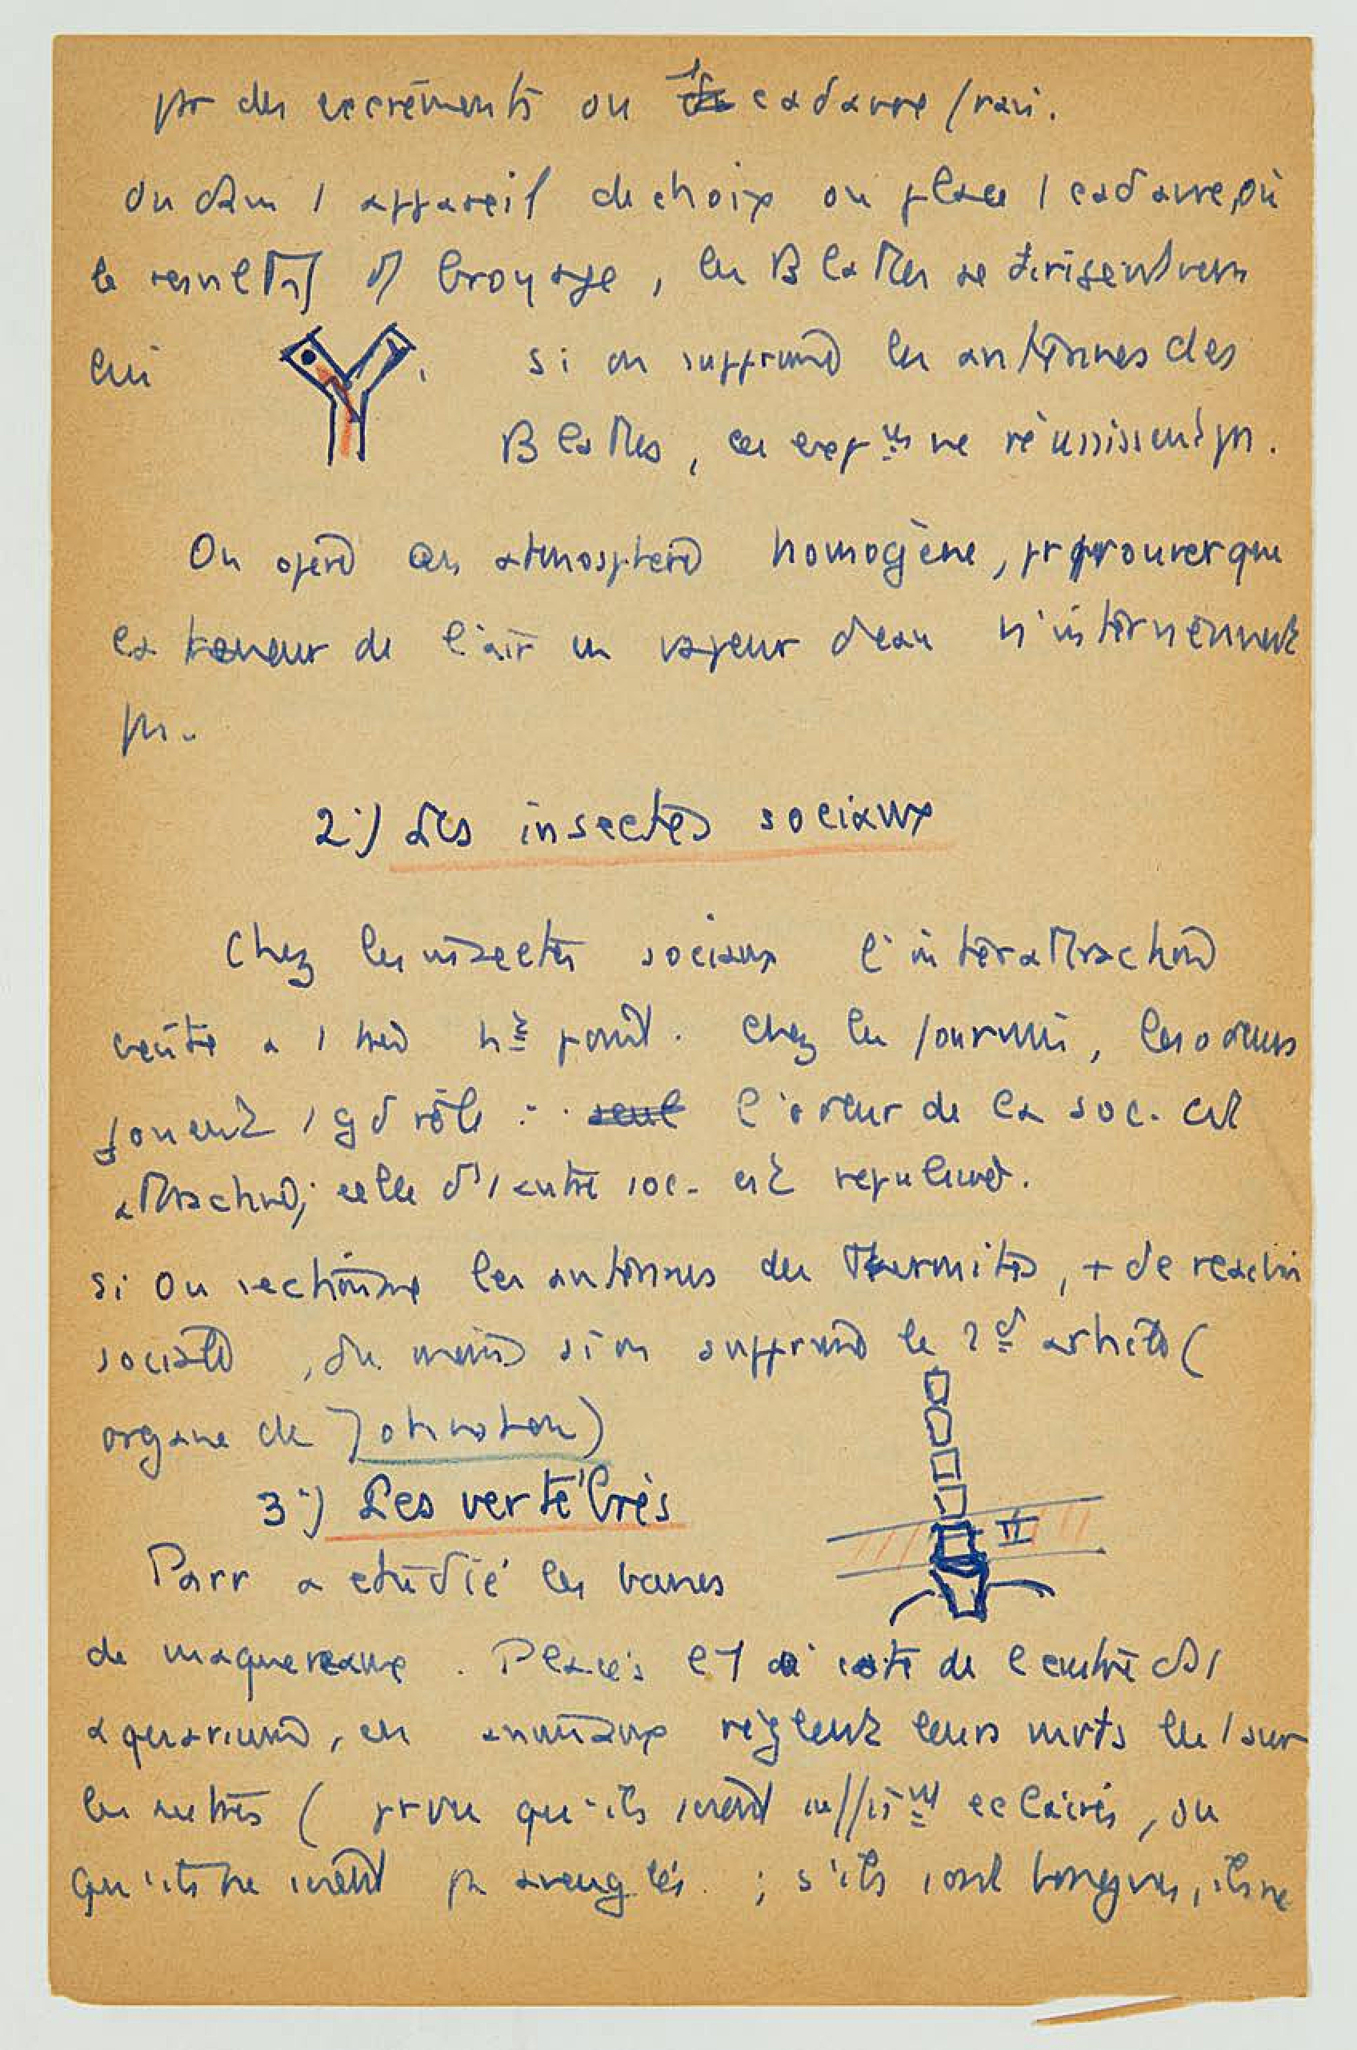 pr des excréments ou 1 cadavre frais.
On dans 1 appareil de choix on place 1 cadavre, ou
le résultat d'1 broyage, les Blattes se dirigent vers
lui. Si on supprime les antennes des
Blattes, ces exp^ces ne réussissent ps.
On opère en atmosphère homogène, pr prouver que
la teneur de l'air en vapeur d'eau n'interviennent
ps.
2°) Les insectes sociaux
Chez les insectes sociaux l'interattraction
existe à 1 très ht point. Chez les fourmis, les odeurs
jouent 1 gd rôle : seul l'odeur de la soc. est
attractive; celle d'1 autre soc. est repulsive.
Si on sectionne les antennes des Termites, + de reaction
sociale, du moins si on supprime le 2d article (
organe de Johnston)
II
3°) Les vertébrés
Parr a étudié les bancs
de maquereaux. Placés l'1 à coté de l'autre ds 1
aquarium, ces animaux règlent leurs mvts les 1 sur
les autres (prvu qu'ils soient suffis^mt eclairés, ou
qu'ils ne soient ps aveuglés. ; s'ils sont borgnes, ils ne